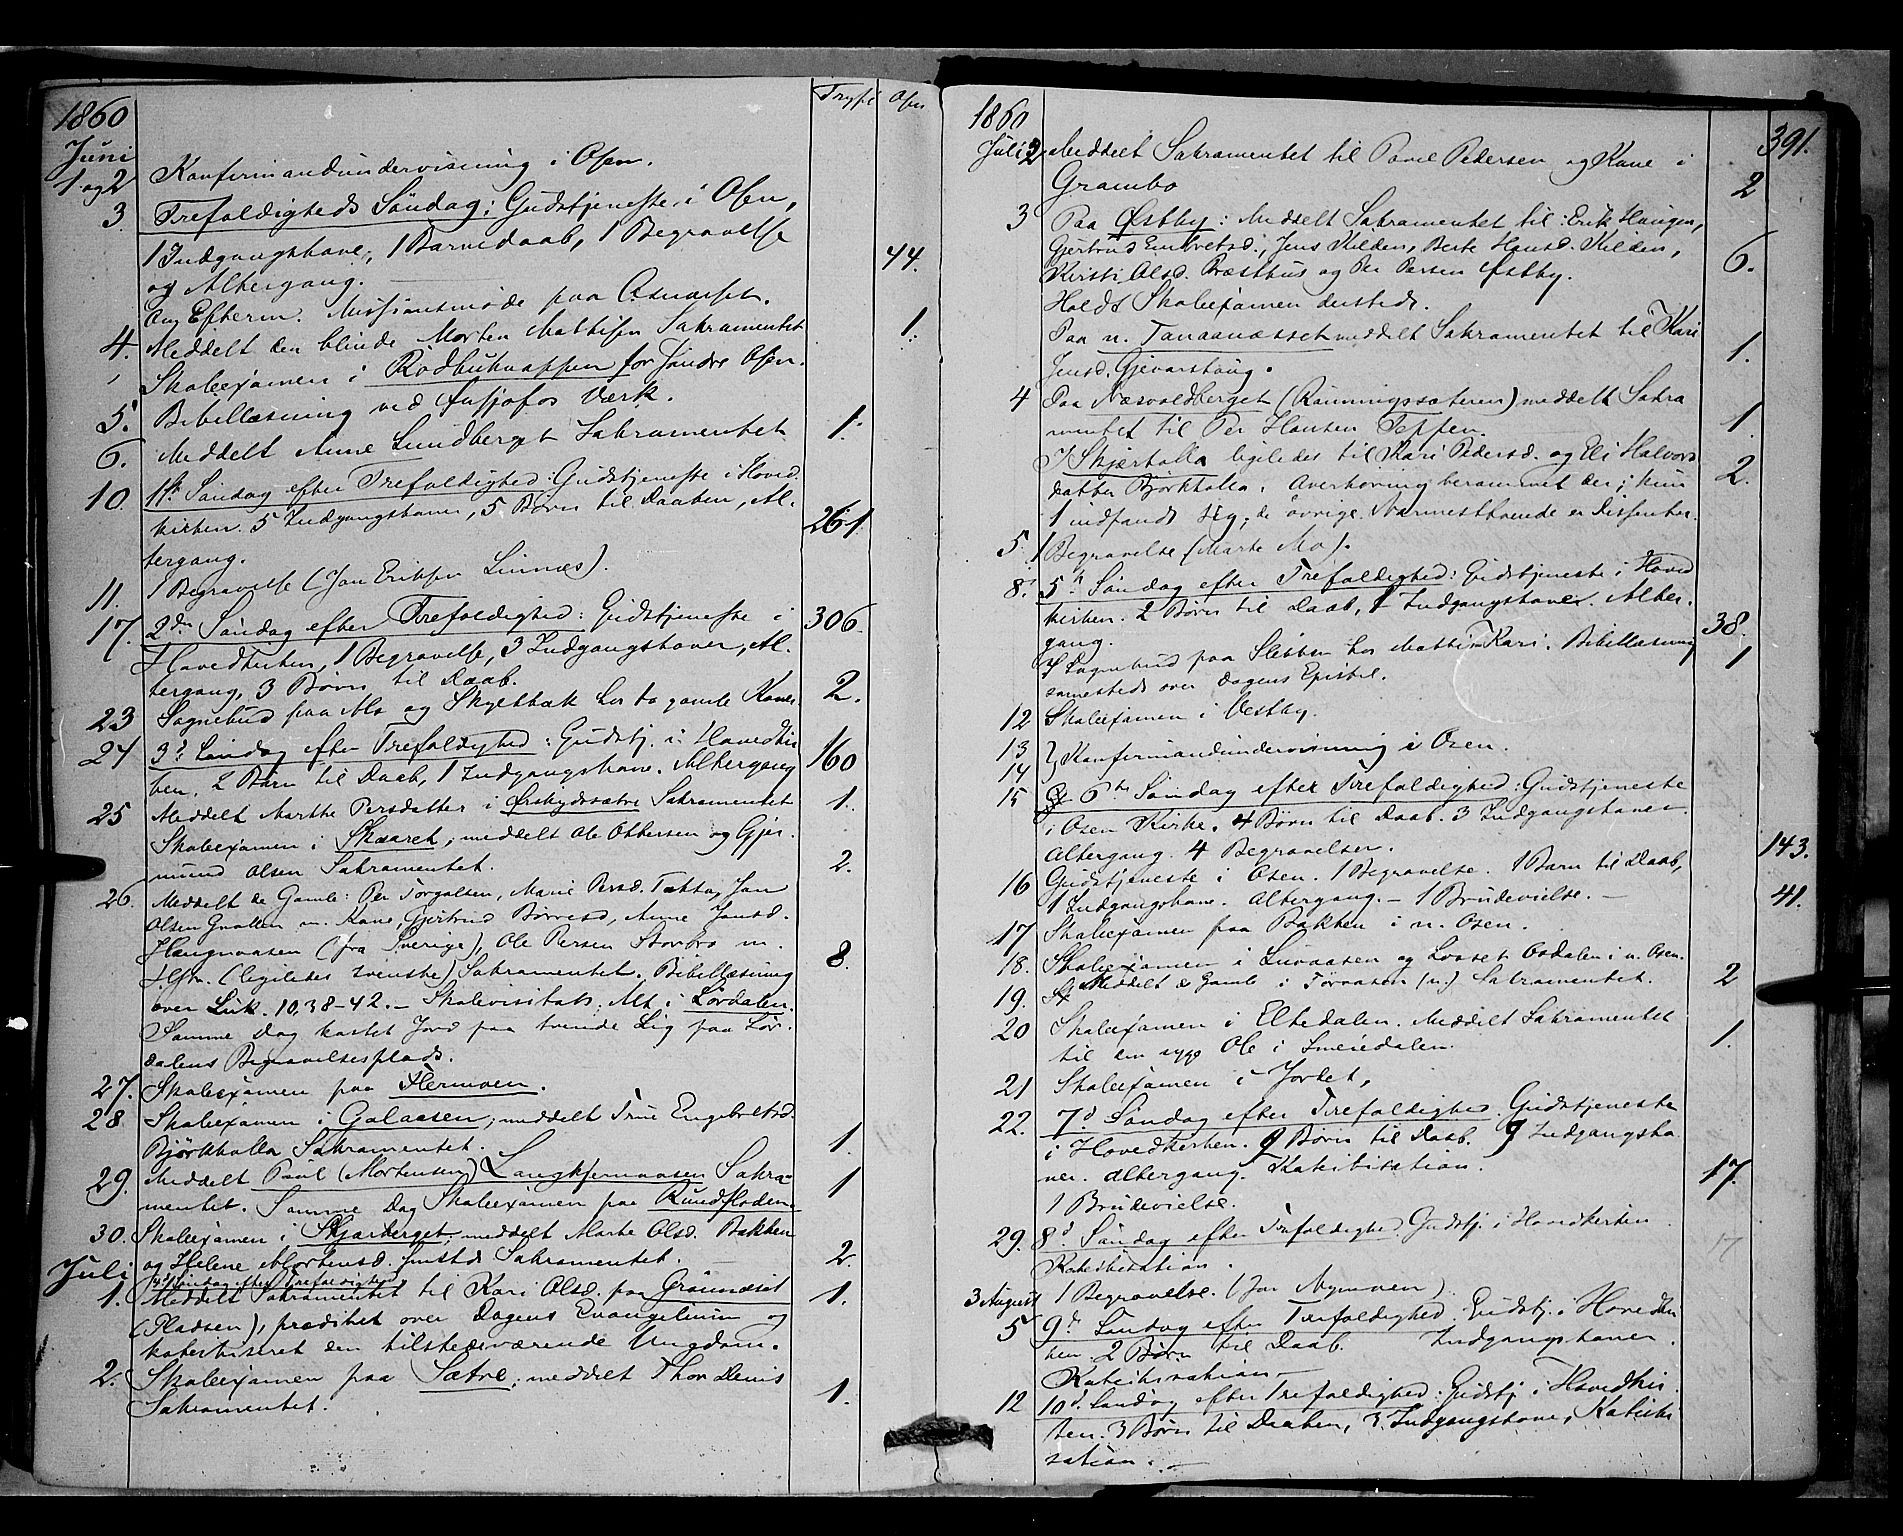 1860
Trysil Osen
Juni
1 og 2 Konfirmandundervisning i Osen.
3. Trefoldigheds Søndag: Gudstjeneste i Osen,
1 Indgangskone, 1 Barnedaab, 1 Begravelse
og Altergang. 44.
Om Efterm. Missionsmøde paa Osnæsset.
4. Meddelt den blinde Morten Mattisen Sakramentet 1.
Skoleexamen i Rödbuknappen for søndre Osen.
5. Bibellæsning ved Værk.
6. Meddelt Anne Lundberget Sakramentet 1.
10. 1ste Søndag efter Trefoldighed: Gudstjeneste i Hoved
kirken. 5 Indgangskoner, 5 Børn til Daaben, Al- 261.
tergang.
11. 1 Begravelse (Jon Eriksen Linnæs).
17. 2den Søndag efter Trefoldighed: Gudstjeneste i 306.
Hovedkirken, 1 Begravelse, 3 Indgangskoner, Al-
tergang, 3 Børn til Daab.
23 Sognebud paa Mo og Skyltbæk hos to gamle Koner 2.
24 3d Søndag efter Trefoldighed: Gudstj. i Hovedkir
ken. 2 Børn til Daab, 1 Indgangskone. Altergang 160
25 Meddelt Marthe Persdatter i Ørskydsætre Sakramentet 1.
Skoleexamen i Skaaret; meddelt Ole Ottersen og Gjer-
mund Olsen Sakramentet. 2.
26. Meddelt de Gamle: Per Torgalsen, Marie Persd. Jon
Olsen m. Kone, Gjertrud Anne Jonsd.
(fra Sverige), Ole Persen Storbro m.
Hstr. (ligeledes svenske) Sakramentet. Bibellæsning 8.
over Luk. 10,38-42. – Skolevisitats. Alt i Lørdalen.
Samme Dag kastet Jord paa tvende Lig paa Lør-
dalens Begravelsesplads.
27. Skoleexamen paa Flermoen.
28 Skoleexamen i Galaasen; meddelt Engebretsd.
Bjørkholla Sakramentet. 1.
29. Meddelt Paul (Mortensen) Langkjernaasen Sakra- 1
mentet. Samme Dag Skoleexamen paa Rundfloden.
30. Skoleexamen i Skjærberget, meddelt Marte Olsd. Bakken
og Helene Mortensd. Sakramentet. 2.
Juli
4d Søndag efter Trefoldighed
1. Meddelt Sakramentet til Kari Olsd. paa Grønnæset 1.
(Pladsen), prædiket over Dagens Evangelium og
katekiseret den tilstedeværende Ungdom.
2. Skoleexamen paa Sætre; meddelt Thor Denis
Sakramentet. 1.
1860 391.
Juli 2. Meddelt Sakramentet til Povel Pedersen og Kone i
Grambo 2
3 Paa Østby: Meddelt Sakramentet til: Erik Haugen,
Gjertrud Embretsd., Jens Kilden, Berte Hansd. Kilden, 6.
Kirsti Olsd. Præsthus og Per Persen Østby.
Holdt Skoleexamen dersteds.
Paa n. Tanaanæsset meddelt Sakramentet til Kari 1.
Jensd. Gjevarstaug.
4 Paa Næsvoldberget (Rønningssæteren) meddelt Sakra
mentet til Per Hansen Teppen. 1.
I Skjærholla ligeledes til Kari Pedersd. og Eli Halvors
datter Bjørkholla. Overhøring berammet der; kun 2.
1 indfandt sig; de øvrige Nærmestboende er Dissenter.
5. 1 Begravelse (Marte Mo).
8. 5te Søndag efter Trefoldighed: Gudstjeneste i Hoved
kirken. 2 Børn til Daab, 1 Indgangskoner. Alter-
gang. 38.
I Sognebud paa Sletten hos Kari. Bibellæsning 1
sammesteds over Dagens Epistel.
12 Skoleexamen i Vestby.
13 } Konfirmandundervisning i Osen.
14
15 6te Søndag efter Trefoldighed: Gudstjeneste
i Osen Kirke. 4 Børn til Daab. 3 Indgangskoner
Altergang. 4 Begravelser. 143.
16 Gudstjeneste i Osen. 1 Begravelse. 1 Barn til Daab,
1 Indgangskone. Altergang. – 1 Brudevielse. – 41.
17 Skoleexamen paa Bakken i n. Osen.
18. Skoleexamen i Luraasen og Losset Osdalen i n. Osen.
19. Meddelt 2 Gamle i Føraasen (n.) Sakramentet. 2
20 Skoleexamen i Eltedalen. Meddelt Sakramentet
til den syge Ole i Smeiedalen. 1.
21 Skoleexamen i Jordet,
22. 7d Søndag efter Trefoldighed. Gudstjeneste
i Hovedkirken. 9 Børn til Daab. 9 Indgangsko
ner. Altergang. Katekisation. 17.
1 Brudevielse.
29. 8d Søndag efter Trefoldighed. Gudstj. i Hovedkirken 17
Katekisation.
3 August 1 Begravelse. (Jon Nymoen)
5 9de Søndag efter Trefoldighed. Gudstj. i Hovedkir
ken. 2 Børn til Daab. Indgangskoner.
Katekisation –
12 10d. Søndag efter Trefoldighed: Gudstj. i Hovedkir
ken. 3 Børn til Daaben, 3 Indgangskone, Kateki
sation. –